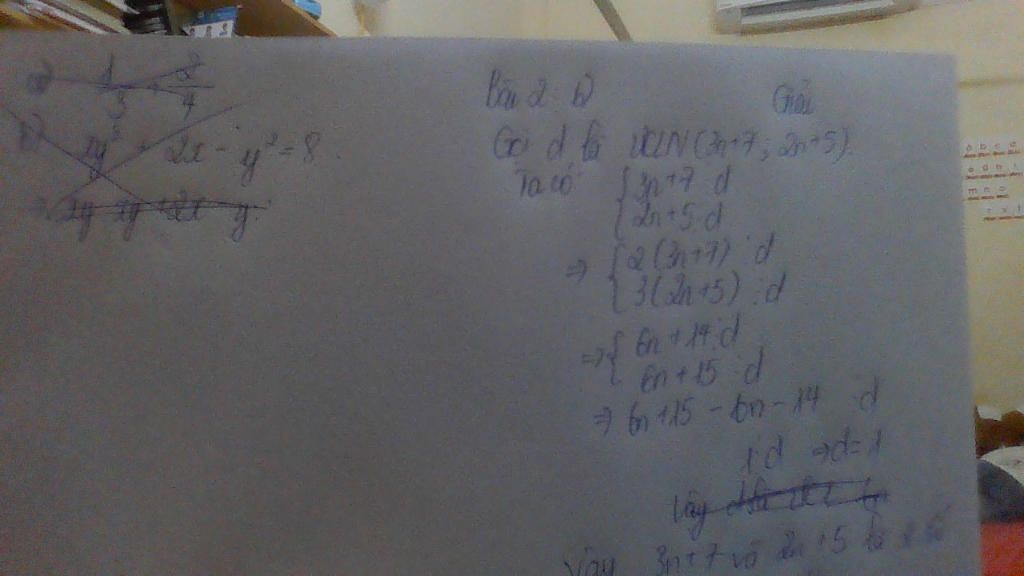 a) 1/3 + 2/4
b) xy² + 2x - y² = 8.
Bài 2: b)
Giải
Gọi d là ƯCLN (3n+7; 2n+5).
Ta có: { 3n+7 ⋮ d
2n+5 ⋮ d
=> { 2(3n+7) ⋮ d
3(2n+5) ⋮ d
=> { 6n+14 ⋮ d
6n+15 ⋮ d
=> 6n+15 - 6n - 14 ⋮ d
1 ⋮ d => d=1
Vậy
Vậy 3n+7 và 2n+5 là 2 số